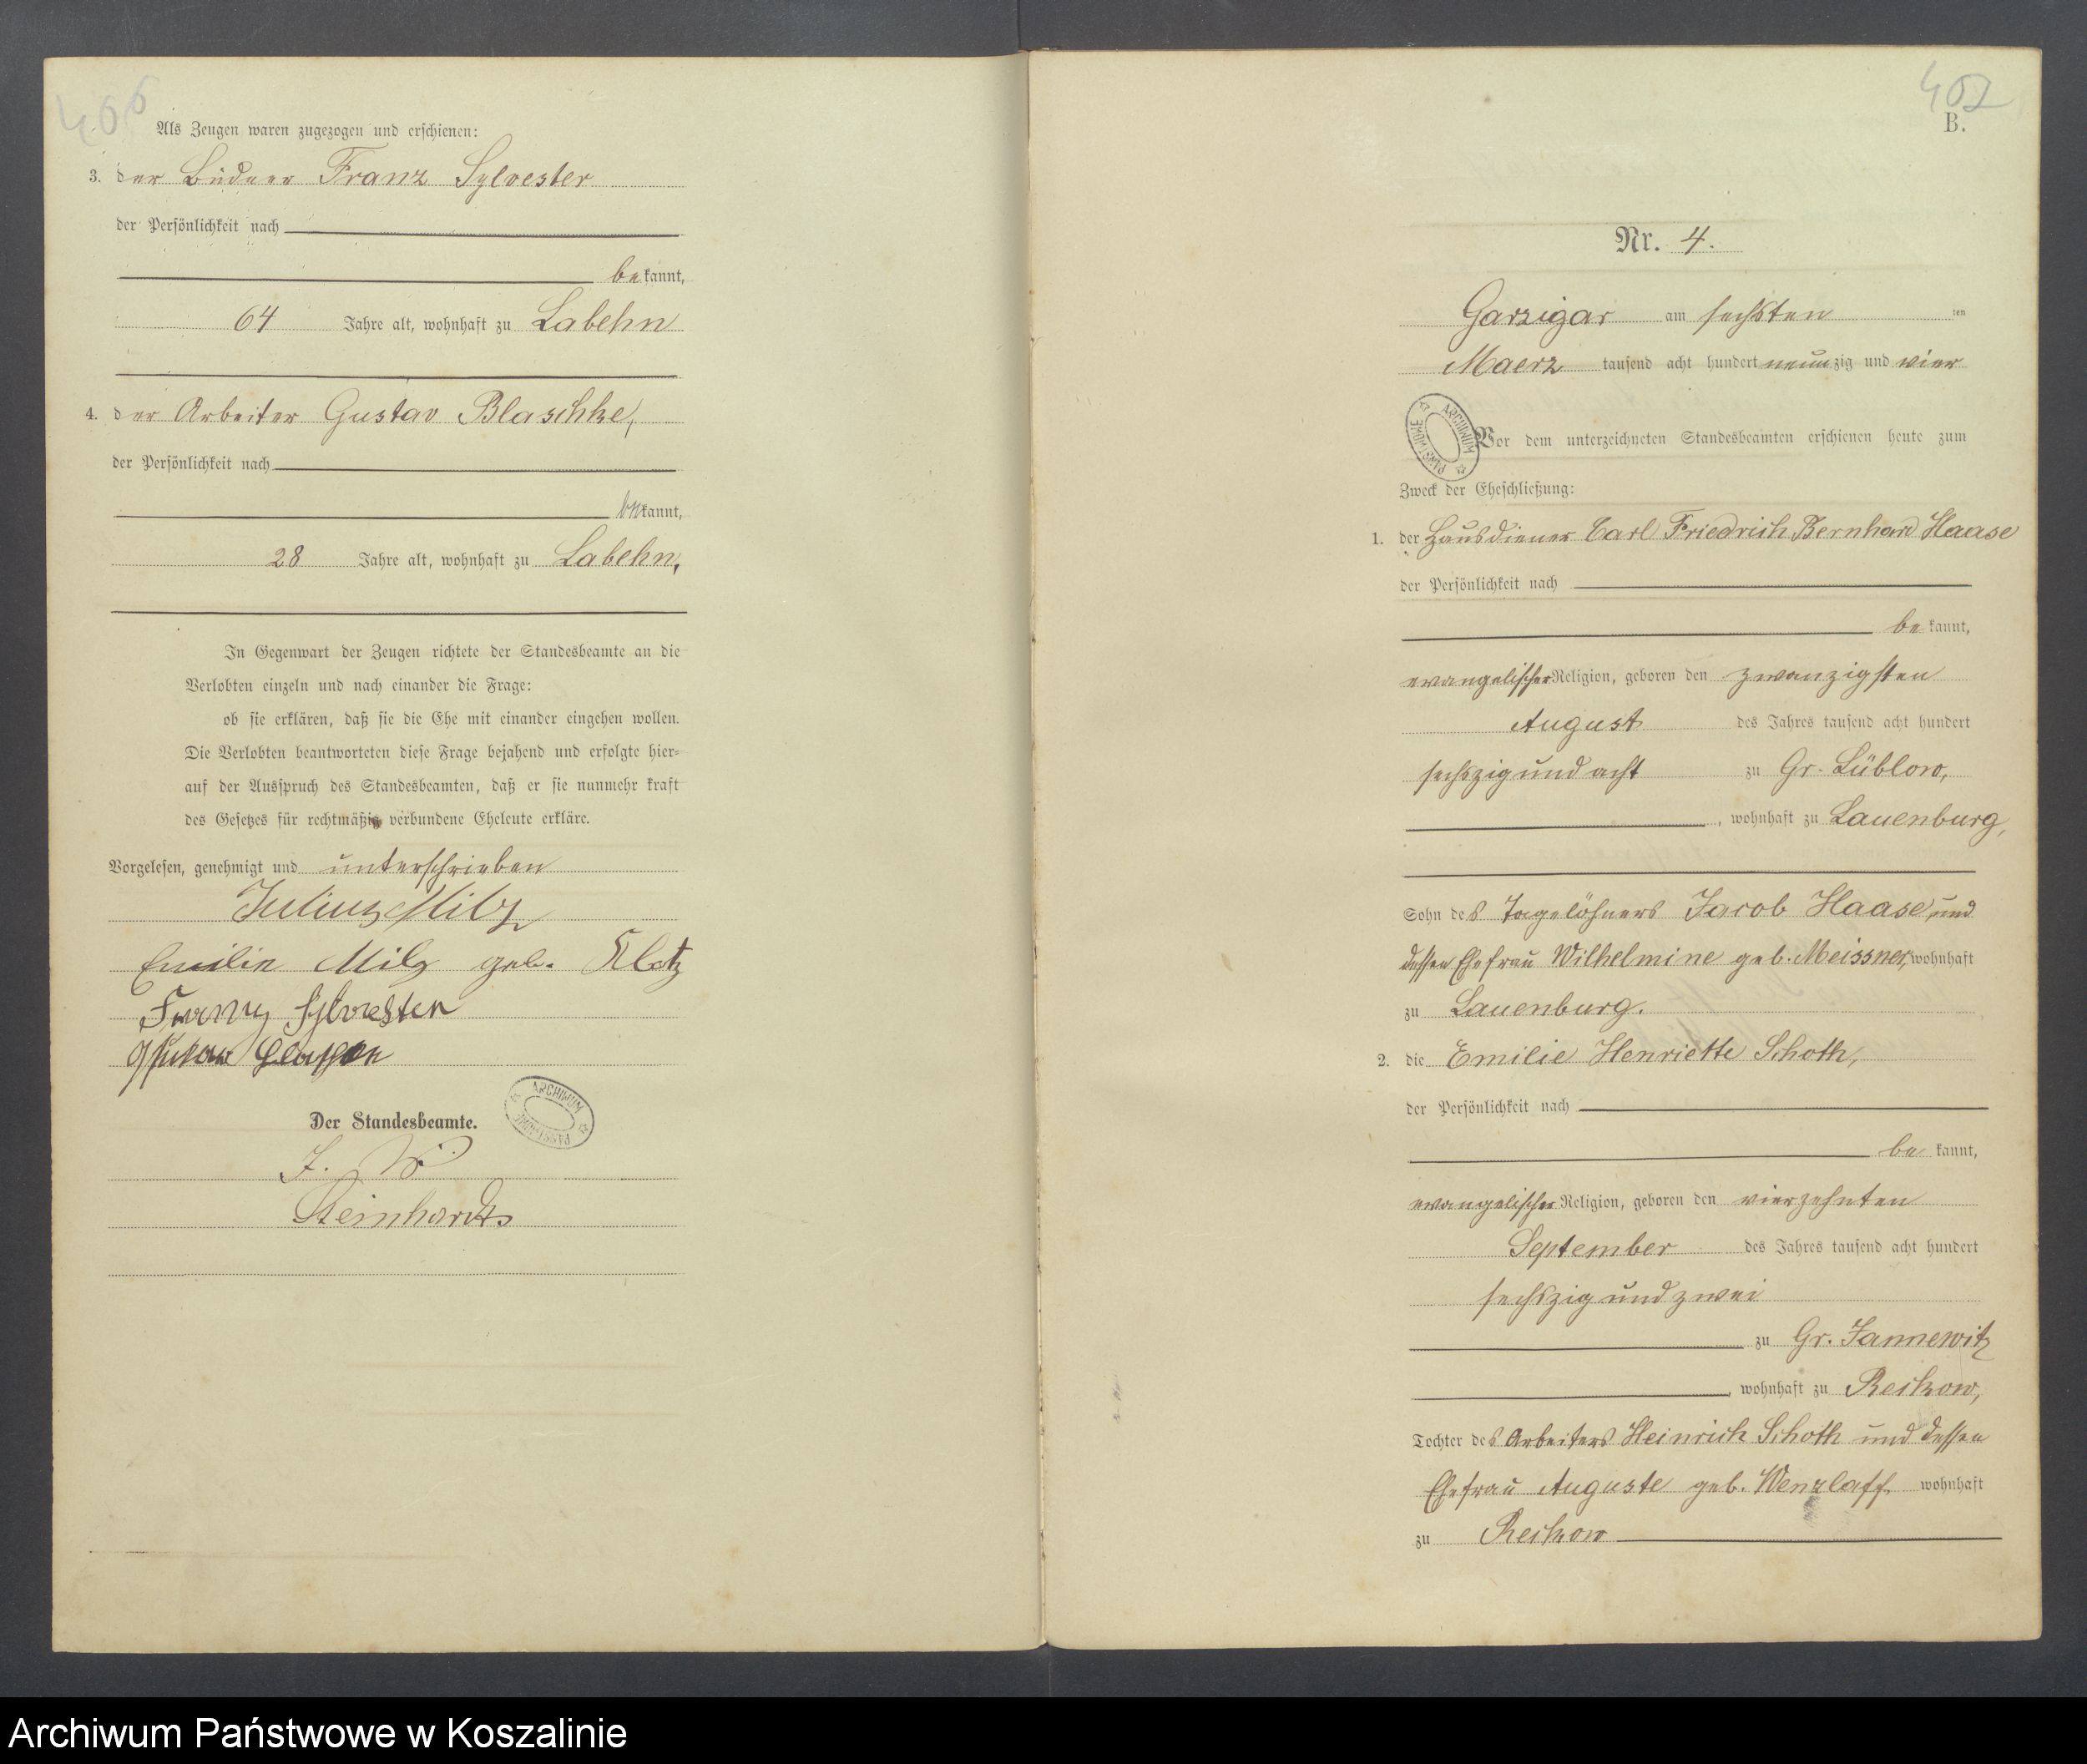 406
Als Zeugen waren zugezogen und erschienen:
3. der Büdner Franz Sylvester
der Persönlichkeit nach
bekannt,
64 Jahre alt, wohnhaft zu Labehn
4. der Arbeiter Gustav Blaschke,
der Persönlichkeit nach
bekannt,
28 Jahre alt, wohnhaft zu Labehn,
In Gegenwart der Zeugen richtete der Standesbeamte an die
Verlobten einzeln und nach einander die Frage:
ob sie erklären, daß sie die Ehe mit einander eingehen wollen.
Die Verlobten beantworteten diese Frage bejahend und erfolgte hier-
auf der Ausspruch des Standesbeamten, daß er sie nunmehr kraft
des Gesetzes für rechtmäßig verbundene Eheleute erkläre.
Vorgelesen, genehmigt und unterschrieben
Julius Milz
Emilie Milz geb. Klotz
Franz Sylvester
Gustav
Der Standesbeamte.
ARCHIWUM PAŃSTWOWE
J. V.
Steinhardt
402
B.
Nr. 4.
Garzigar am sechsten ten
Maerz tausend acht hundert neunzig und vier
ARCHIWUM PAŃSTWOWE
Vor dem unterzeichneten Standesbeamten erschienen heute zum
Zweck der Eheschließung:
1. der Hausdiener Carl Friedrich Bernhard Haase
der Persönlichkeit nach
be kannt,
evangelischer Religion, geboren den zwanzigsten
August des Jahres tausend acht hundert
sechszig und acht zu Gr. Lüblow,
, wohnhaft zu Lauenburg,
Sohn des Tagelöhners Jacob Haase, und
dessen Ehefrau Wilhelmine geb. Meissner, wohnhaft
zu Lauenburg.
2. die Emilie Henriette Schoth,
der Persönlichkeit nach
be kannt,
evangelischer Religion, geboren den vierzehnten
September des Jahres tausend acht hundert
sechszig und zwei
zu Gr. Jannewitz
, wohnhaft zu Reckow,
Tochter des Arbeiters Heinrich Schoth und dessen
Ehefrau Auguste geb. Wenzlaff. wohnhaft
zu Reckow
Archiwum Państwowe w Koszalinie